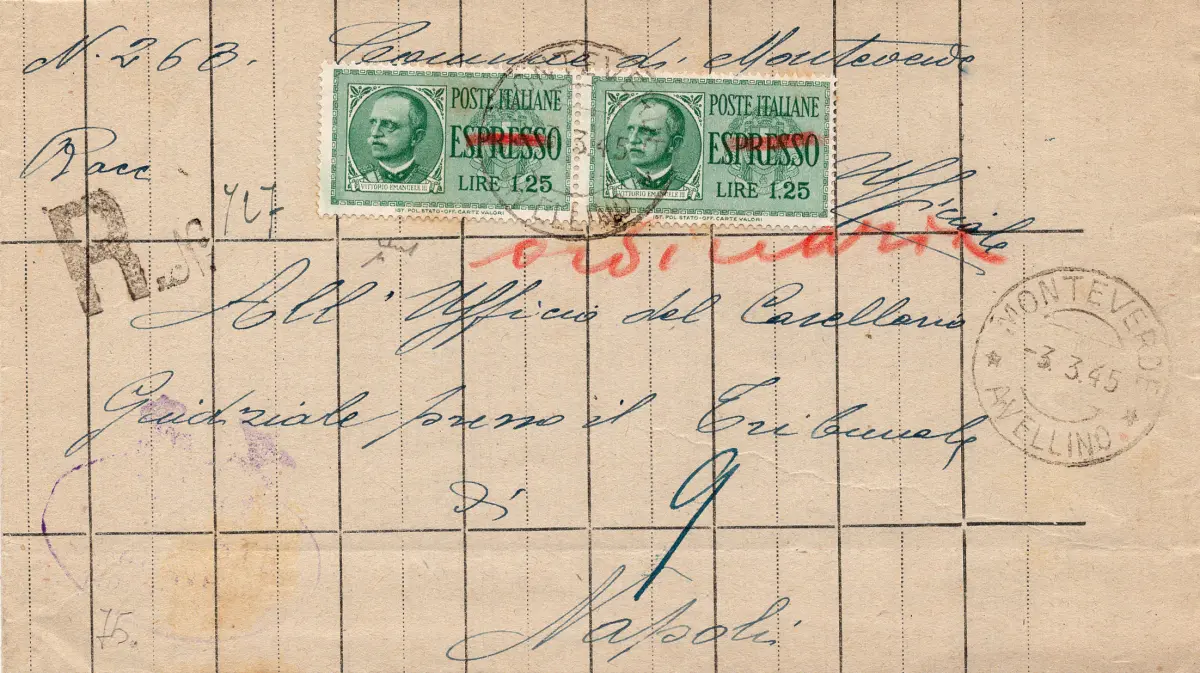 N. 263. Comune di Monteverde
POSTE ITALIANE
ESPRESSO
LIRE 1.25
VITTORIO EMANUELE III
IST. POL. STATO-OFF. CARTE VALORI
POSTE ITALIANE
ESPRESSO
LIRE 1.25
VITTORIO EMANUELE III
IST. POL. STATO-OFF. CARTE VALORI
MONTEVERDE
3 45
AVELLINO
Racc
Ufficiale
R. N.
727
ordinaria
All' Ufficio del Casellario
MONTEVERDE
-3. 3.45
AVELLINO
Giudiziale presso il Tribunale
di
9
Napoli
75.